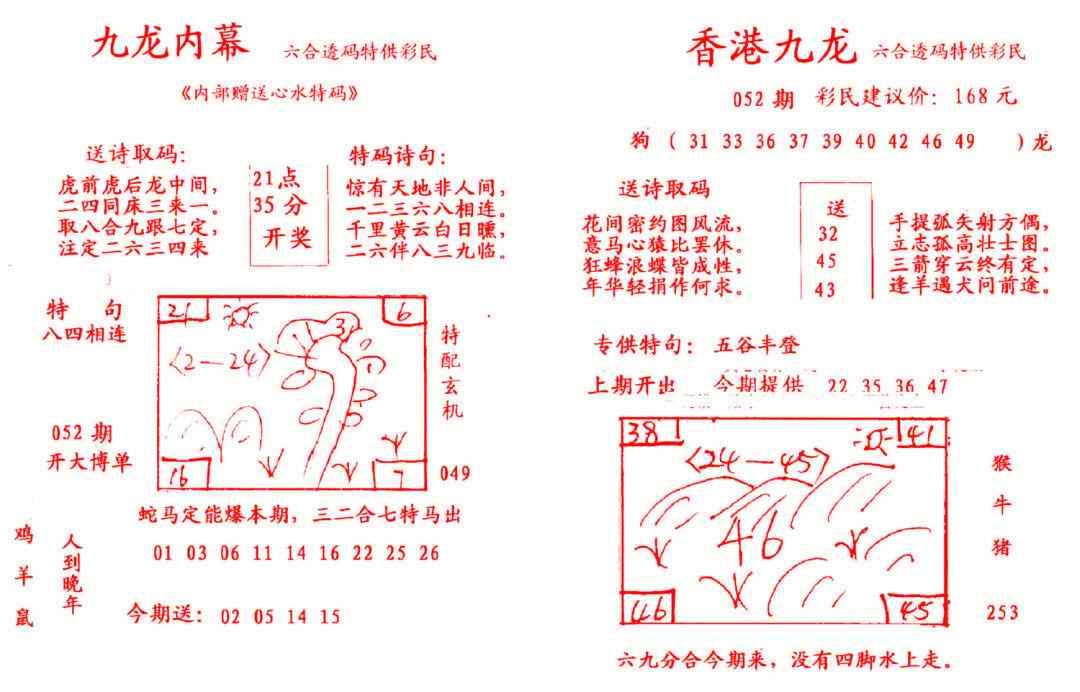 九龙内幕 六合透码特供彩民
《内部赠送心水特码》
送诗取码：
虎前虎后龙中间，
二四同床三来一。
取八合九跟七定，
注定二六三四来
21点
35分
开奖
特码诗句：
惊有天地非人间，
一二三六八相连。
千里黄云白日曛，
二六伴八三九临。
特 句
八四相连
052期
开大博单
21
6
3
〈2—24〉
16
7
特配玄机
049
蛇马定能爆本期，三二合七特马出
鸡羊鼠
人到晚年
01 03 06 11 14 16 22 25 26
今期送：02 05 14 15
香港九龙 六合透码特供彩民
052期 彩民建议价：168元
狗（31 33 36 37 39 40 42 46 49 ）龙
送诗取码
花间密约图风流，
意马心猿比罢休。
狂蜂浪蝶皆成性，
年华轻捐作何求。
送
32
45
43
手提弧矢射方偶，
立志孤高壮士图。
三箭穿云终有定，
逢羊遇犬问前途。
专供特句：五谷丰登
上期开出 今期提供 22 35 36 47
38
41
〈24—45〉
46
46
45
猴牛猪
253
六九分合今期来，没有四脚水上走。